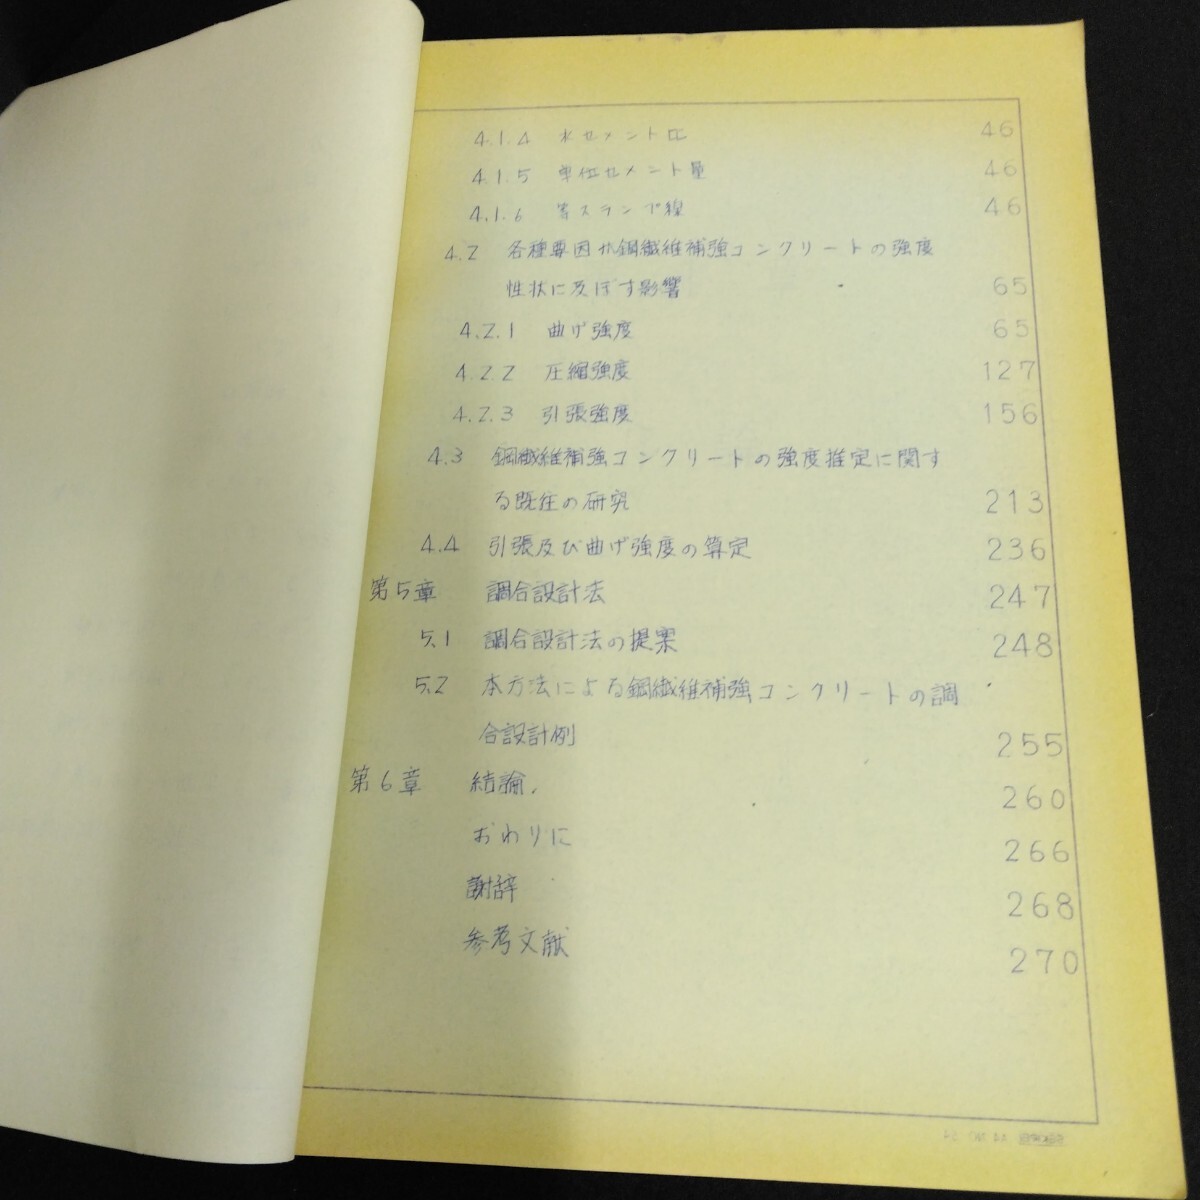 4.1.4 水セメント比 46
4.1.5 単位セメント量 46
4.1.6 等スランプ線 46
4.2 各種要因が鋼繊維補強コンクリートの強度
性状に及ぼす影響 65
4.2.1 曲げ強度 65
4.2.2 圧縮強度 127
4.2.3 引張強度 156
4.3 鋼繊維補強コンクリートの強度推定に関す
る既往の研究 213
4.4 引張及び曲げ強度の算定 236
第5章 調合設計法 247
5.1 調合設計法の提案 248
5.2 本方法による鋼繊維補強コンクリートの調
合設計例 255
第6章 結論 260
おわりに 266
謝辞 268
参考文献 270